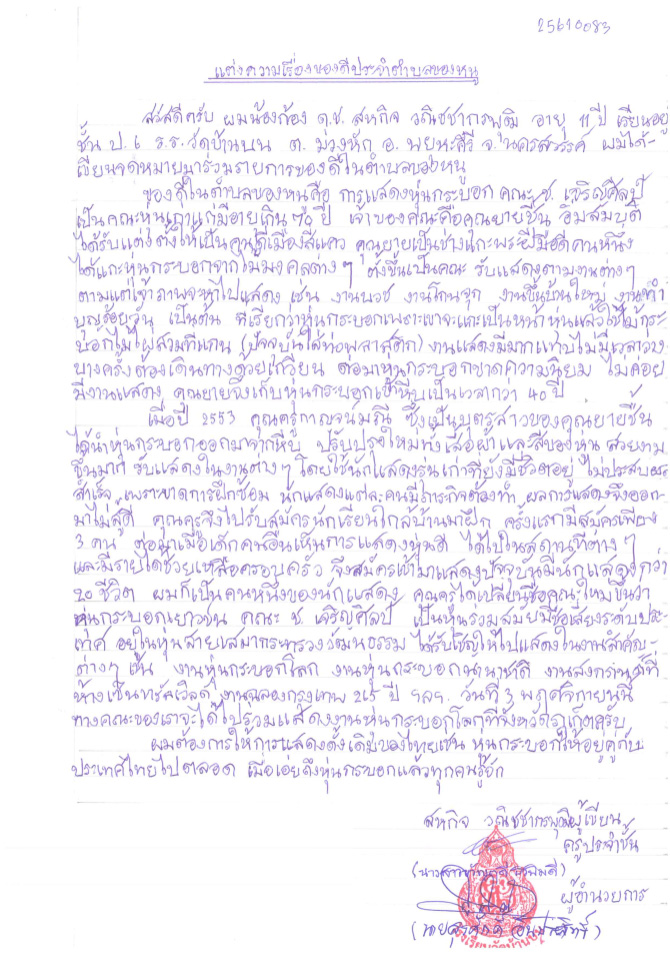 25610083
แต่งความเรื่องของดีประจำตำบลของหนู
สวัสดีครับ ผมน้องก้อง ด.ช. สหกิจ วณิชชากรพุฒิ อายุ 11 ปี เรียนอยู่
ชั้น ป.6 ร.ร.วัดบ้านบน ต. ม่วงหัก อ. พยุหะคีรี จ.นครสวรรค์ ผมได้
เขียนจดหมายมาร่วมรายการของดีในตำบลของหนู
ของดีในตำบลของหนูคือ การแสดงหุ่นกระบอก คณะ ช. เจริญศิลป์
เป็นคณะหุ่นเก่าแก่มีอายุเกิน 70 ปี เจ้าของคณะคือคุณยายชื้น
ได้รับแต่งตั้งให้เป็นคนดีเมืองสี่แคว คุณยายเป็นช่างแกะพระฝีมือดีคนหนึ่ง
ได้แกะหุ่นกระบอกจากไม้มงคลต่างๆ ตั้งขึ้นเป็นคณะ รับแสดงตามงานต่างๆ
ตามแต่เจ้าภาพจะหาไปแสดง เช่น งานบวช งานโกนจุก งานขึ้นบ้านใหม่ งานทำ
บุญร้อยวัน เป็นต้น ที่เรียกว่าหุ่นกระบอกเพราะเขาจะแกะเป็นหน้าหุ่นแล้วใช้ไม้กระ
บอกไม้ไผ่สวมที่แกน (ปัจจุบันใส่ท่อพลาสติก) งานแสดงมีมากแทบไม่มีเวลาว่าง
บางครั้งต้องเดินทางด้วยเกวียน ต่อมาหุ่นกระบอกขาดความนิยม ไม่ค่อย
มีงานแสดง คุณยายจึงเก็บหุ่นกระบอกเข้าหีบเป็นเวลากว่า 40 ปี
เมื่อปี 2553 คุณครูกาญจน์มณี ซึ่งเป็นบุตรสาวของคุณยายชื้น
ได้นำหุ่นกระบอกออกมาจากหีบ ปรับปรุงใหม่ทั้งเสื้อผ้าและสีของหุ่น สวยงาม
ขึ้นมาก รับแสดงในงานต่างๆ โดยใช้นักแสดงรุ่นเก่าที่ยังมีชีวิตอยู่ ไม่ประสบผล
สำเร็จ เพราะขาดการฝึกซ้อม นักแสดงแต่ละคนมีภารกิจต้องทำ ผลการแสดงจึงออก
มาไม่สู้ดี คุณครูจึงไปรับสมัครนักเรียนใกล้บ้านมาฝึก ครั้งแรกมีสมัครเพียง
3 คน ต่อมาเมื่อเด็กคนอื่นเห็นการแสดงหุ่นดี ได้ไปในสถานที่ต่างๆ
และมีรายได้ช่วยเหลือครอบครัว จึงสมัครเข้ามาแสดงปัจจุบันมีนักแสดงกว่า
20 ชีวิต ผมก็เป็นคนหนึ่งของนักแสดง คุณครูได้เปลี่ยนชื่อคณะใหม่ขึ้นว่า
หุ่นกระบอกเยาวชน คณะ ช. เจริญศิลป์ เป็นหุ่นร่วมสมัยมีชื่อเสียงระดับประ
เทศ อยู่ในหุ่นสายเสมากระทรวงวัฒนธรรม ได้รับเชิญให้ไปแสดงในงานสำคัญ
ต่างๆ เช่น งานหุ่นกระบอกโลก งานหุ่นกระบอกนานาชาติ งานสงกรานต์ที่
ห้างเซ็นทรัลเวิลด์ งานฉลองกรุงเทพ 215 ปี ฯลฯ. วันที่ 3 พฤศจิกายนนี้
ทางคณะของเราจะได้ไปร่วมแสดงงานหุ่นกระบอกโลกที่จังหวัดภูเก็ตครับ
ผมต้องการให้การแสดงดั้งเดิมของไทยเช่น หุ่นกระบอกให้อยู่คู่กับ
ประเทศไทยไปตลอด เมื่อเอ่ยถึงหุ่นกระบอกแล้วทุกคนรู้จัก
สหกิจ วณิชชากรพุฒิผู้เขียน
ครูประจำชั้น
ผู้อำนวยการ